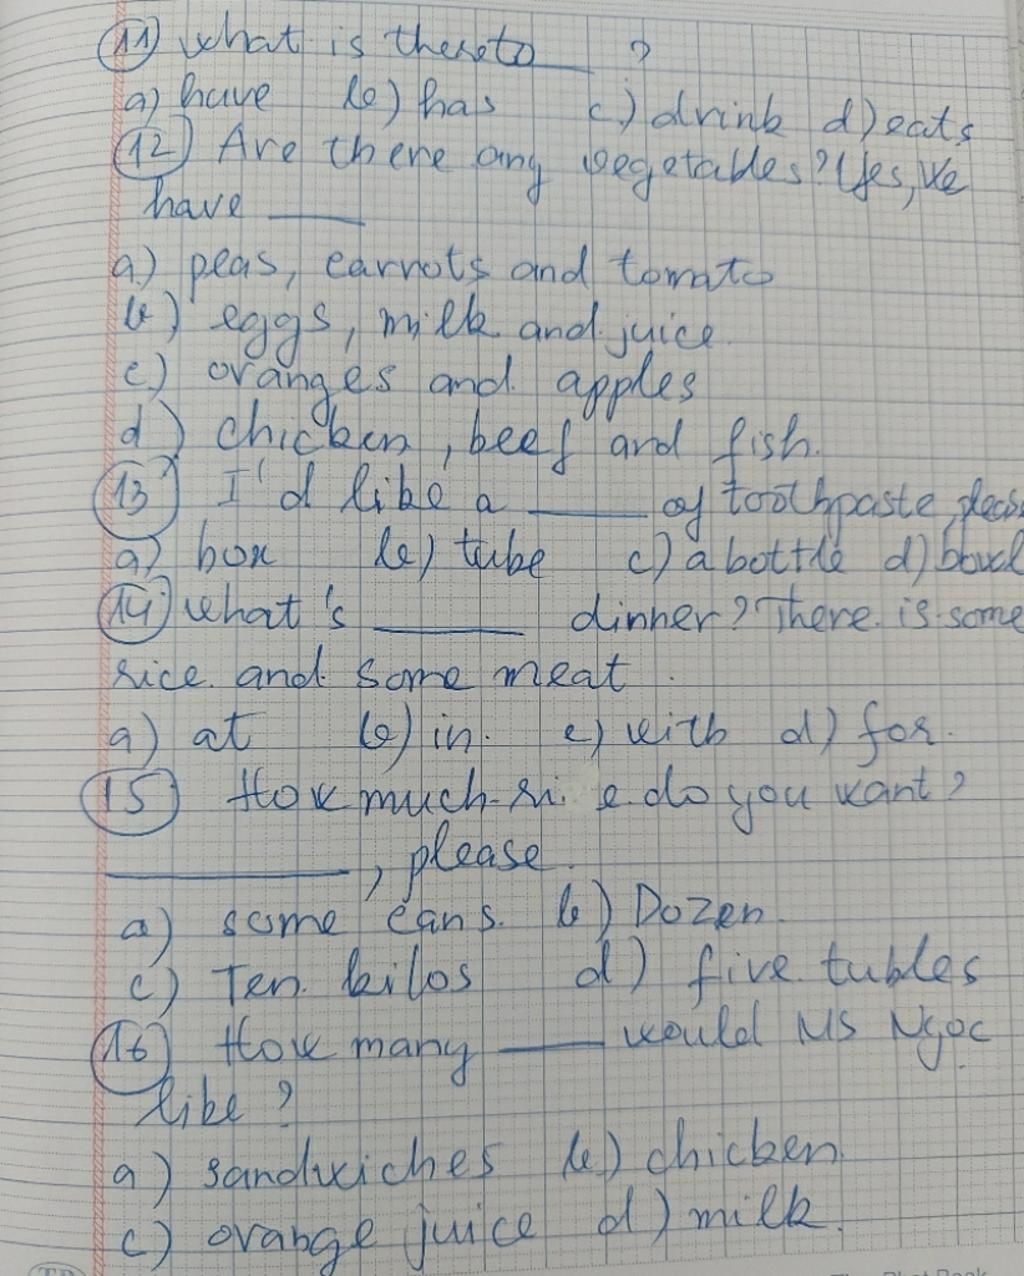 11) what is there to ____ ?
a) have b) has c) drink d) eats
12) Are there any vegetables? Yes, we
have ____
a) peas, carrots and tomato
b) eggs, milk and juice.
c) oranges and apples
d) chicken, beef and fish.
13) I'd like a ____ of toothpaste, pleas
a) box b) tube c) a bottle d) bowl
14) what's ____ dinner? There is some
rice and some meat.
a) at b) in. c) with d) for.
15) How much ri e do you want?
____, please.
a) some cans. b) Dozen.
c) Ten kilos d) five tubles
16) How many ____ would Ms Ngoc
like?
a) sandwiches b) chicken.
c) orange juice d) milk.